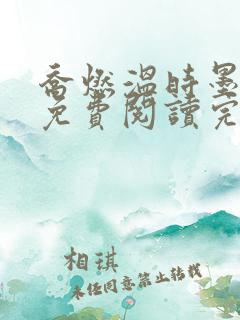 喬燃溫時墨
免費閱讀完
相琪
未任同意禁止转载